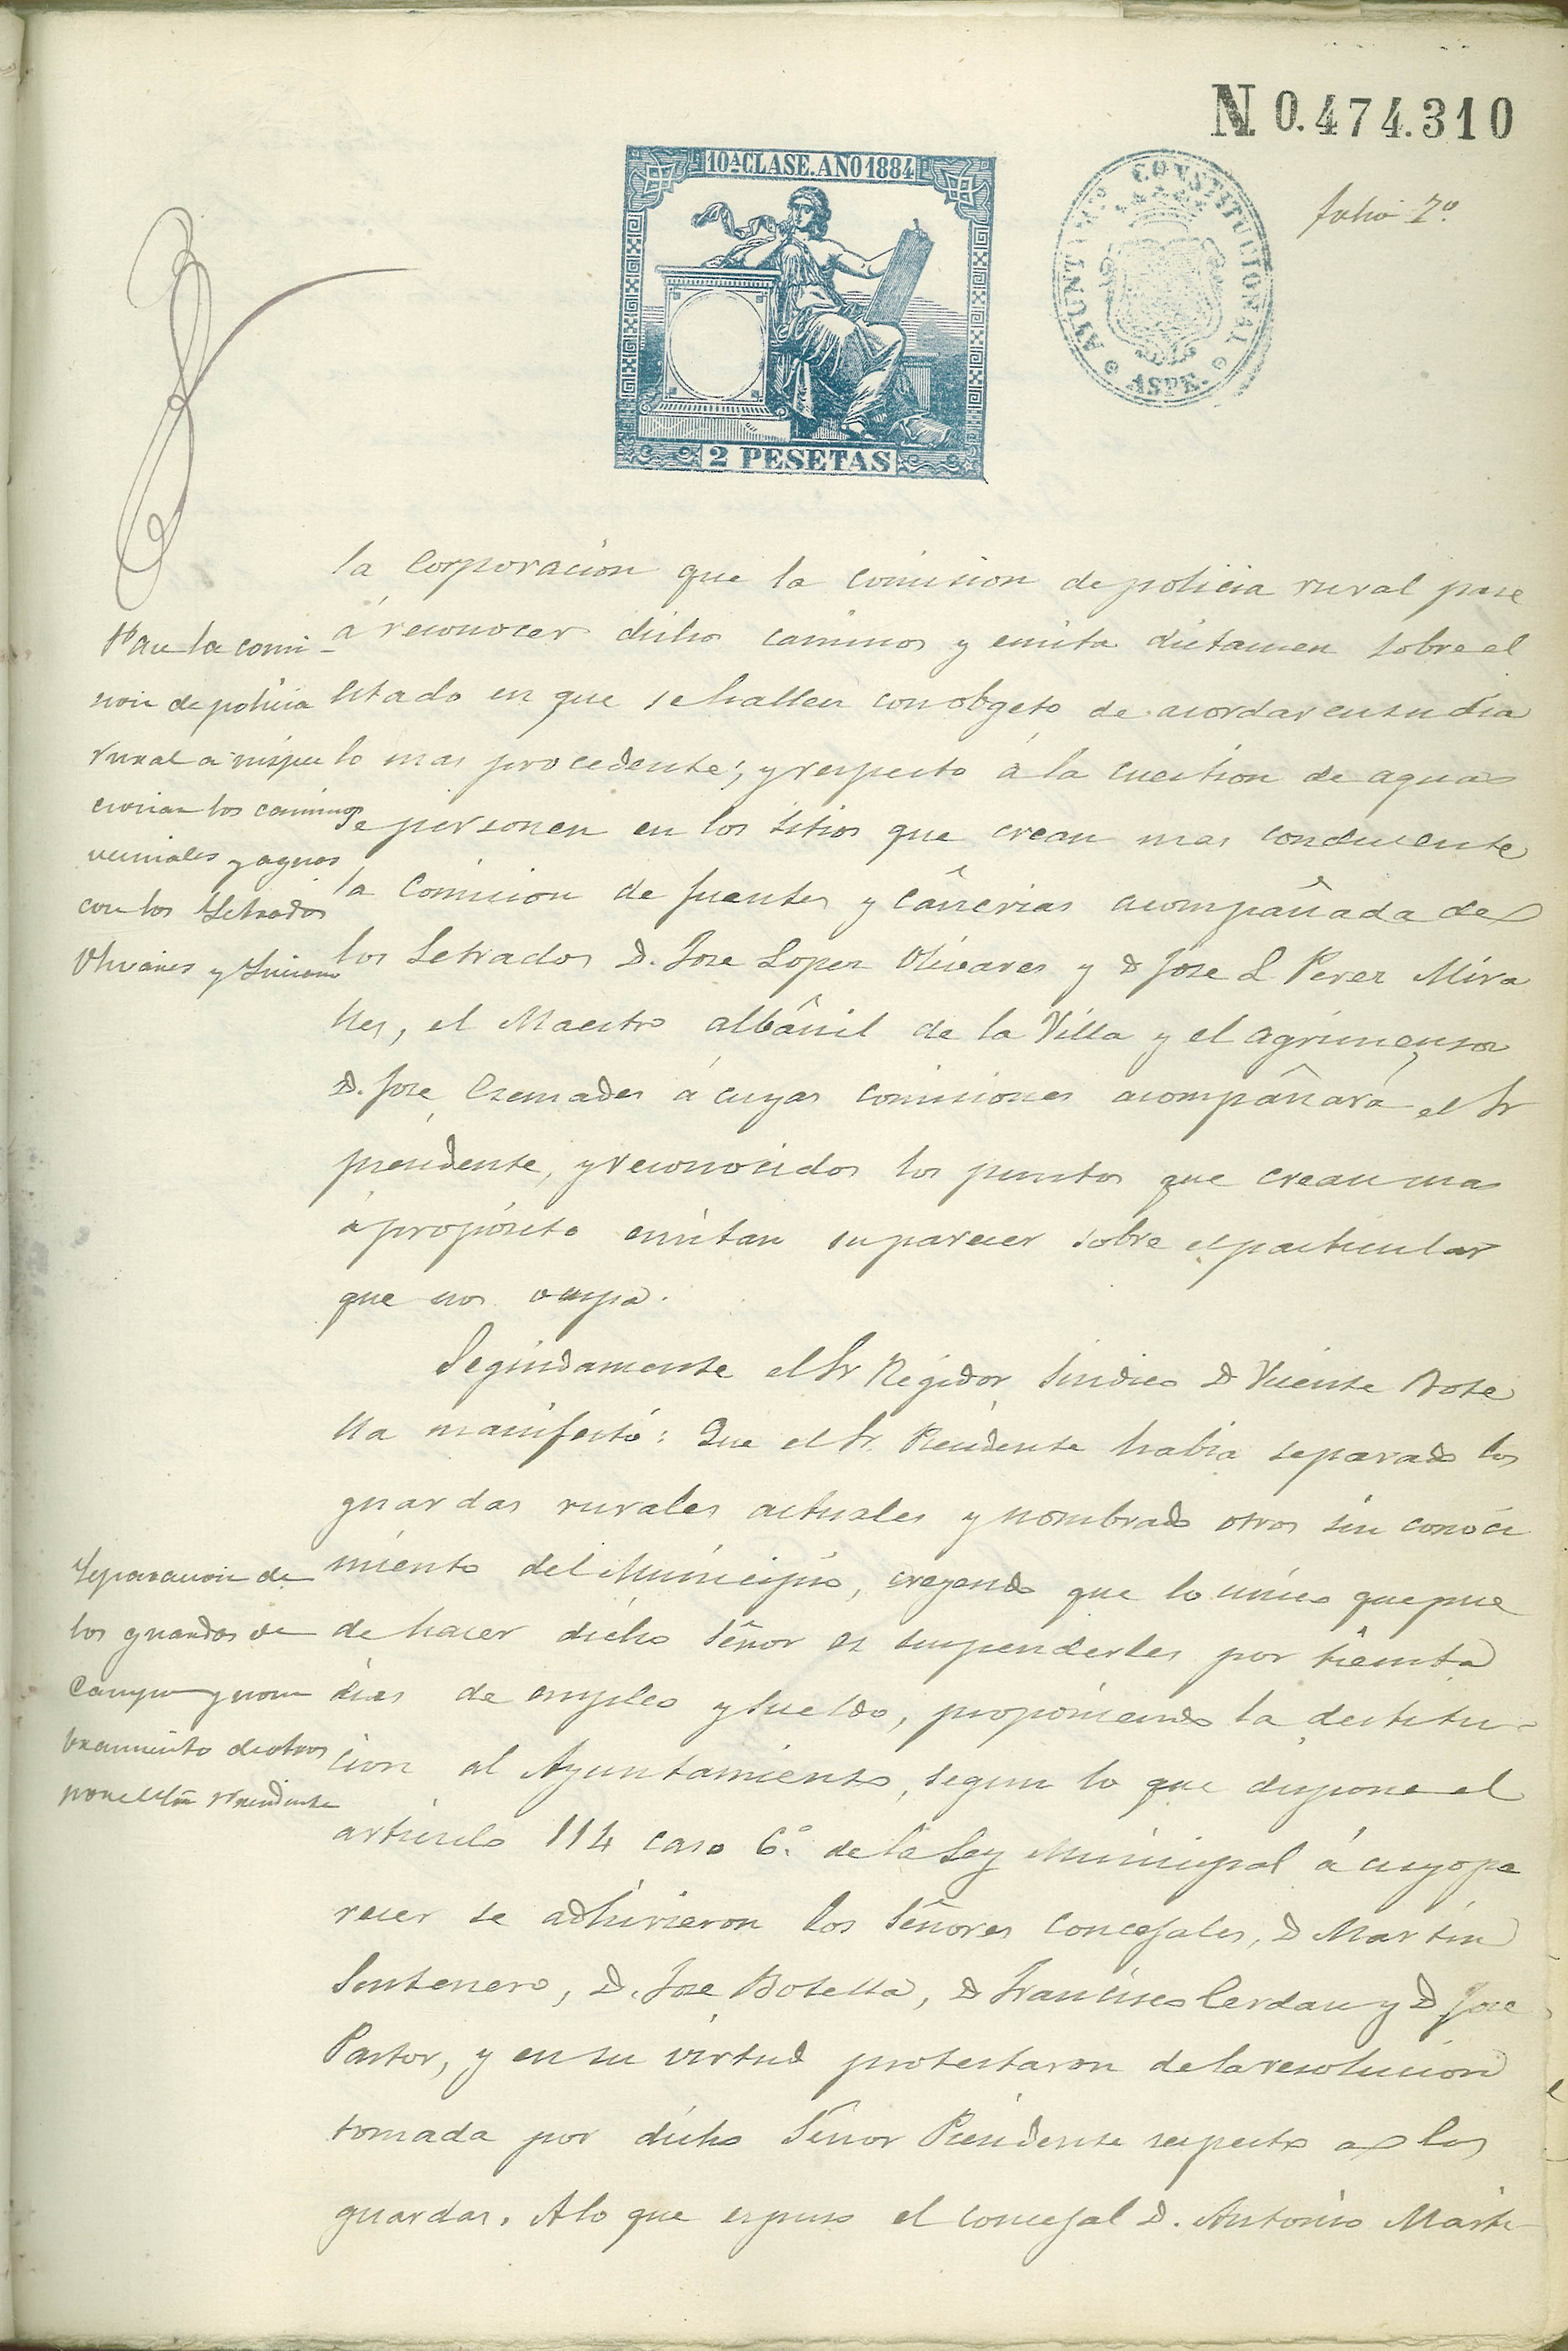 N. 0.474.310
10ª CLASE. AÑO 1884
2 PESETAS
AYUNTAMTO CONSTITUCIONAL
ASPE.
folio 7º
la Corporacion que la comision de policia rural pase
á reconocer dichos caminos y emita dictamen sobre el
estado en que se hallen con obgeto de acordar en su dia
lo mas procedente; y respecto á la cuestion de aguas
se personen en los sitios que crean mas conducente
la Comision de fuentes y cañerias acompañada de
los Letrados D. Jose Lopez Olivares y D Jose L. Perez Mira
lles, el Maestro albañil de la Villa y el agrimensor
D. Jose Cremades á cuyas comisiones acompañará el Sr
presidente, y reconocidos los puntos que crean mas
á propósito emitan su parecer sobre el particular
que nos ocupa.
Segundamente el Sr Regidor Sindico D Vicente Bote
lla manifestó: Que el Sr. Presidente habia separado los
guardas rurales actuales y nombrado otros sin conoci
miento del Municipio, creyendo que lo unico que pue
de hacer dicho Señor es suspenderles por treinta
dias de empleo y sueldo, proponiendo la destitu-
cion al Ayuntamiento, segun lo que dispone el
articulo 114 caso 6.º de la Ley Municipal á cuyo pa
recer se adhirieron los Señores Concejales, D Martin
Sentenero, D. Jose Botella, D Francisco Cerdan y D Jose
Pastor, y en su virtud protestaron de la resolucion
tomada por dicho Señor Presidente respecto a los
guardas. A lo que espuso el concejal D. Antonio Marti-
Pase la comi-
sion de policia
rural a inspec
cionar los caminos
vecinales y aguas
con los Letrados
Olivares y
Separacion de
los guardas de
Campo y nom
bramiento de otros
por el Sr Presidente